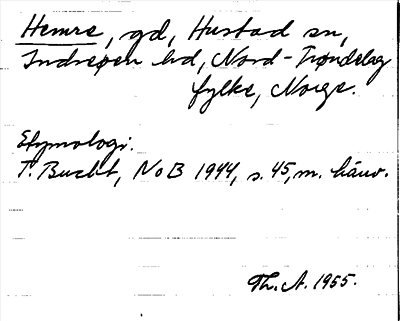 Hemre, gd, Hustad sn,
Indrøyen hd, Nord-Trøndelag
fylke, Norge.
Etymologi.
T. Bucht, NoB 1944, s. 45, m. hänv.
Th. A. 1955.